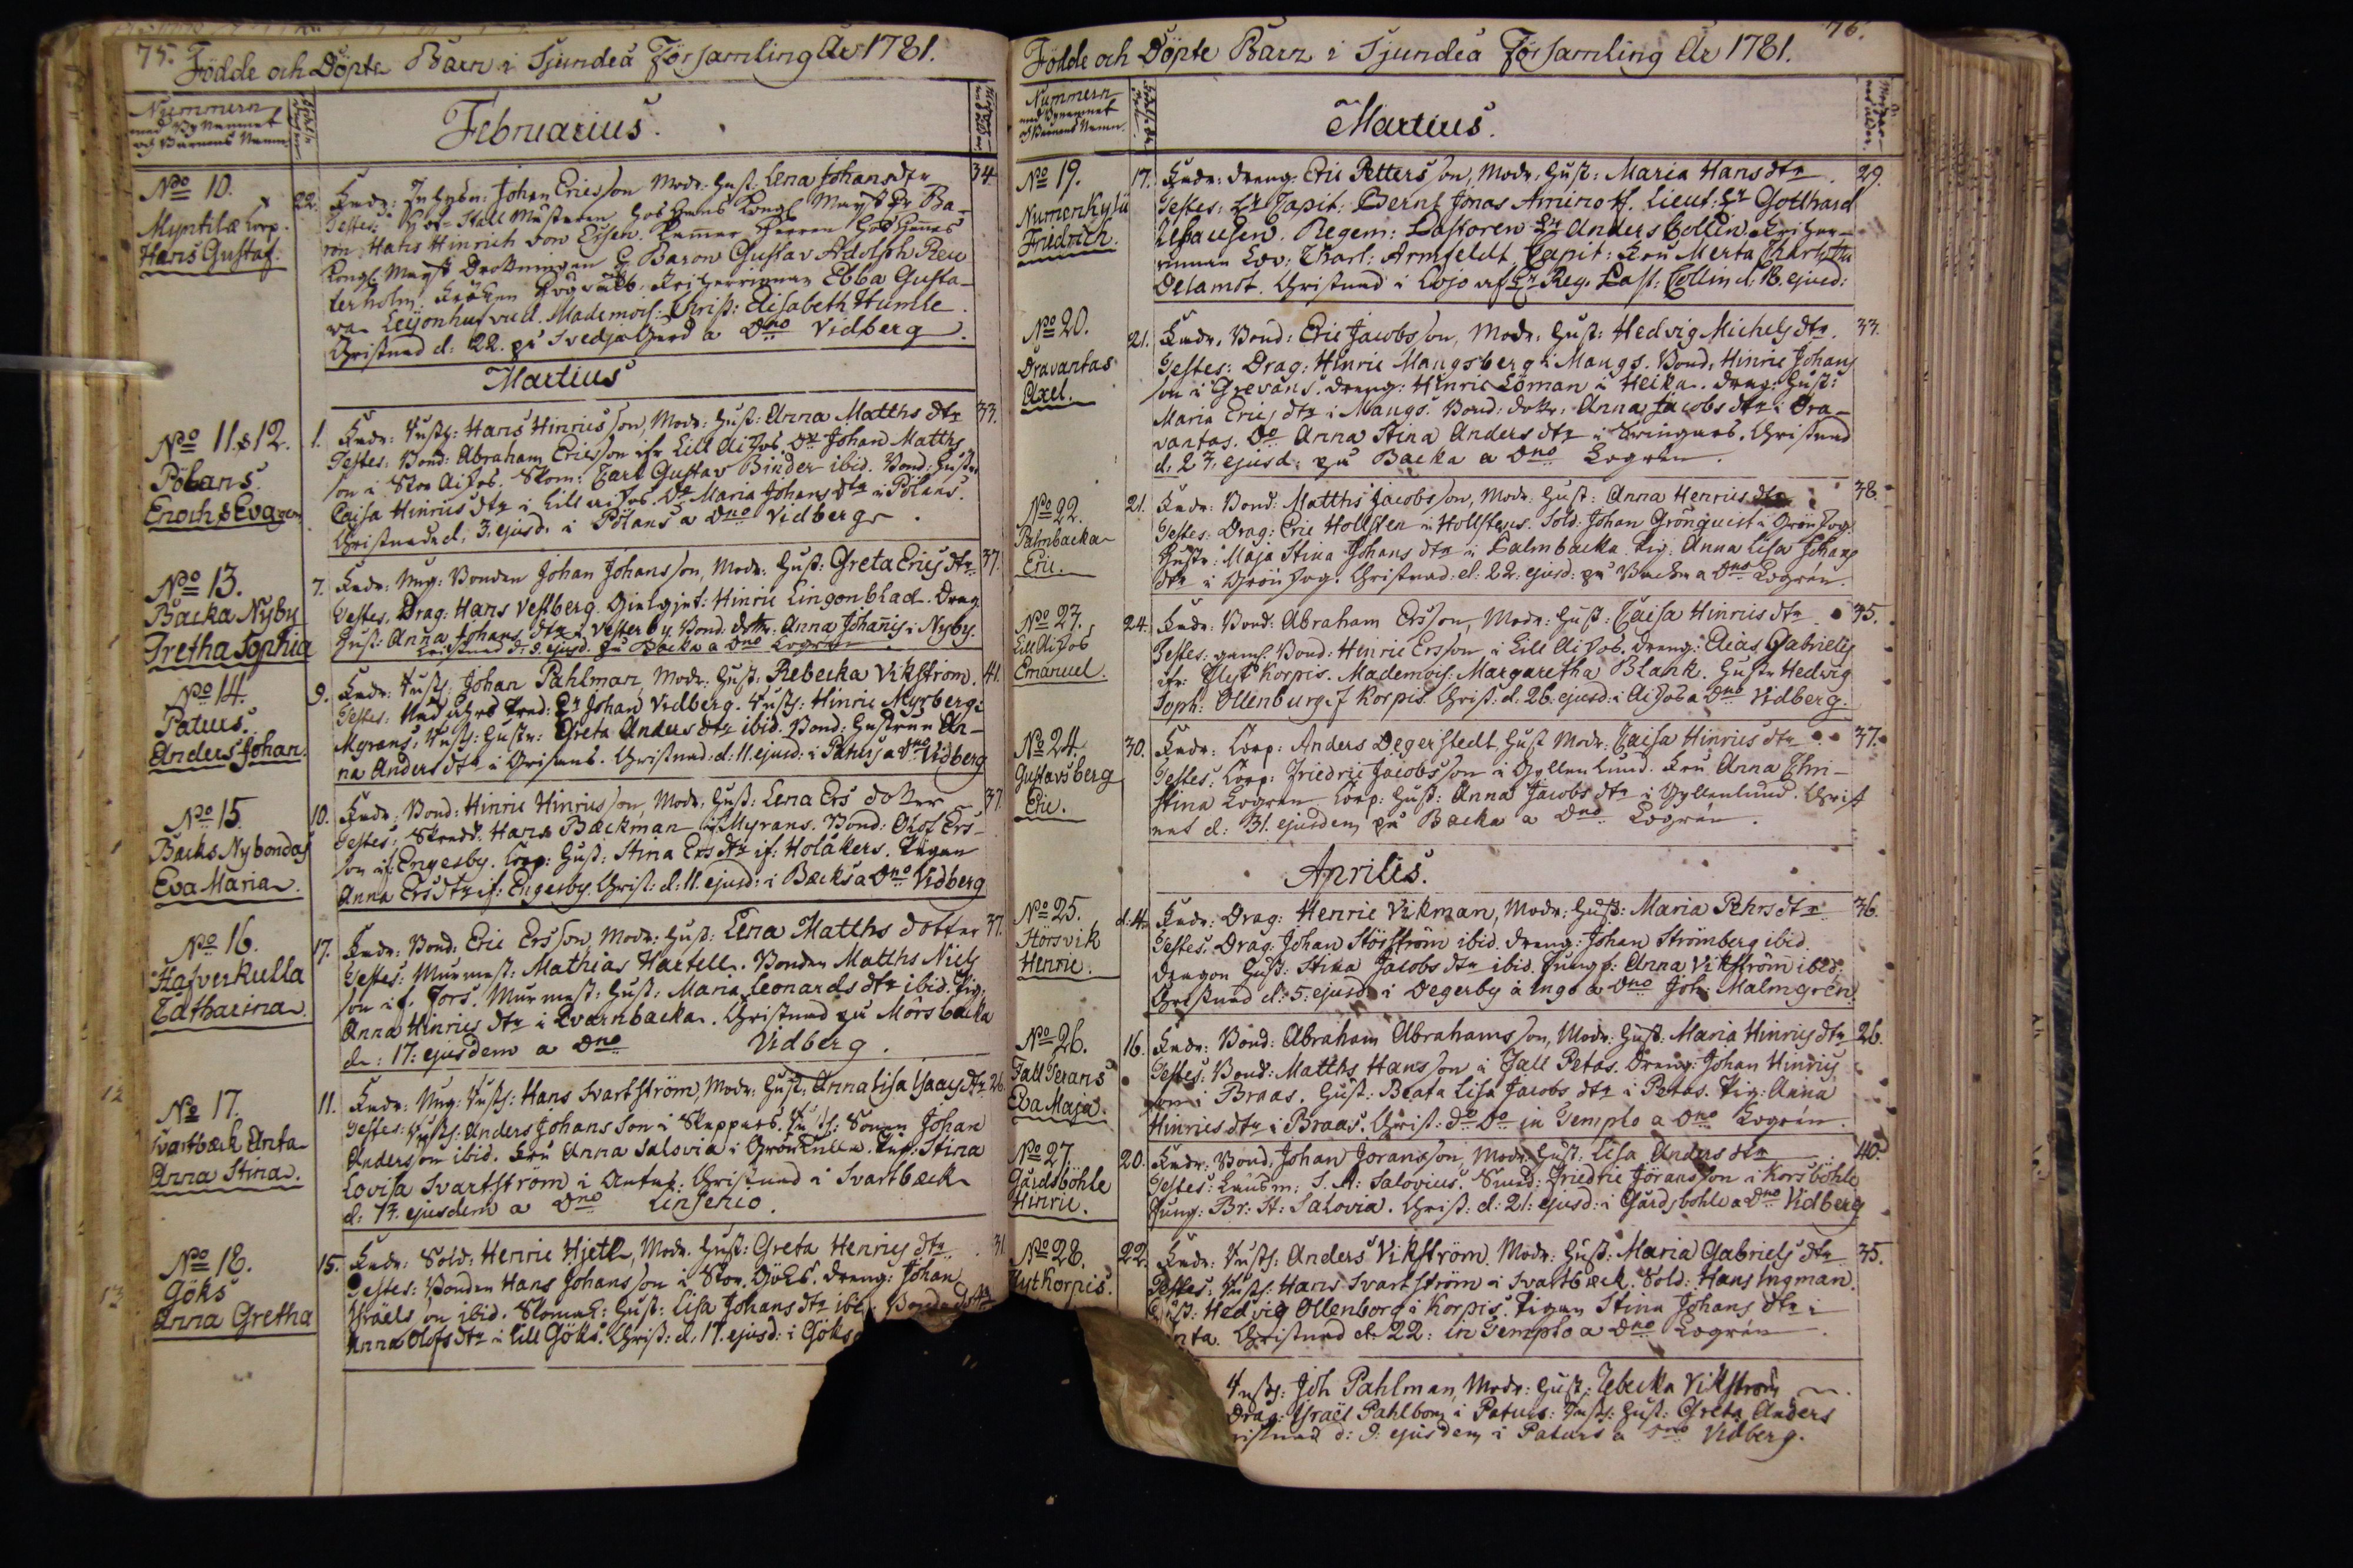 75. Födde och Döpte Barn i Sjundeå Församling År 1781.
Nummern
med Bynamnet
och Barnens Namn
Februarius.
No 10.
Myntilæ Corp.
Hans Gustaf.
22. Fadr: Johan Ericsson Modr: Hust: Lena Johans dtr 34
Testes: Hof-Stall Mästaren Hos Hans Kongl. Mayst Hr Ba-
ron Hans Hinrich von Essen. Kammar Herren Hos Hennes
Kongl: Mayst Drottningen Baron Gustav Adolph Reu
terholm. Fröken Friherrinnan Ebba Gusta-
va Leijonhufvud. Mademois: Christ: Elisabeth Humle.
Christnad d: 22. på Svedja Gård a Dno Vidberg.
Martius
No 11 & 12.
Pölans.
Enoch & Eva
1. Fadr: Hans Hinricsson, Modr: Hust: Anna Matths dtr 33.
Testes: Bond: Abraham Ericsson ifr Lill Aijos. Do Johan Matths
son i Stor Aijos. Skom: Carl Gustav Binder ibid. Bond: Hustr
Caisa Hinrics dtr i Lill Aijos. Do Maria Johans dtr i Pölans.
Christnade d: 3. ejusd: i Pölans a Dno Vidberg.
No 13.
Backa Nyby
Gretha Sophia
7. Fadr: Ung: Bonden Johan Johansson, Modr: Hust: Greta Erics dtr. 37.
Testes. Drag: Hans Vestberg. Hinric Lingonblad. Drag.
Hust: Anna Johans dtr i Vesterby. Bond: dottr: Anna Johans i Nyby.
Christnad d: 8. ejusd. på Backa a Dno Logrén
No 14.
Paturs.
Anders Johan.
9. Fadr: Johan Pahlman, Modr: Hust: Rebecka Vikström. 41.
Testes: Hr Johan Vidberg. Hinric Myrberg i
Myrans, Hustr: Greta Anders dtr ibid. Bond: Hustrun An-
na Anders dtr i Grisans. Christnad: d: 11. ejusd: i Paturs a Dno Vidberg
No 15.
Bäcks Nybondas
Eva Maria.
10. Fadr: Bond: Hinric Hinricsson, Modr: Hust: Lena Ers dotter 37.
Testes: Skredd: Hans Bäckman if Myrans. Bond: Olof Ers-
son if: Engesby. Corp: Hust: Stina Ers dtr if: Holåkers. Pigan
Anna Ers dtr if: Engesby. Christ: d: 11. ejusd: i Bäcks a Dno Vidberg
No 16.
Hafverkulla
Catharina.
17. Fadr: Bond: Eric Ersson, Modr: Hust: Lena Matths dotter 37.
Testes: Murmest: Mathias Hartell. Bonden Matths Niels
son if. Jors. Murmest: Hust: Maria Leonards dtr ibid. Pig.
Anna Hinrics dtr i Qvarnbacka. Christnad på Mörsbacka
d: 17: ejusdem a Dno Vidberg.
No 17.
Svartbäck Anta
Anna Stina.
11. Fadr: Ung: Hans Svartström, Modr: Hust: Anna Lisa Isaacs dtr 26.
Testes: Anders Johans Son i Skeppars. Sonen Johan
Andersson ibid. Fru Anna Salovia i Grönkulla. Stina
Lovisa Svartström i Antas. Christnad i Svartbäck
d: 13. ejusdem a Dno Linsenio.
No 18.
Göks
Anna Gretha
15. Fadr: Sold: Henric Hjelt, Modr. Hust: Greta Henrics dtr 31.
Testes: Bonden Hans Johansson i Stor Göks. Dreng: Johan
Israelsson ibid. Hust: Lisa Johans dtr ibid. Bonde
Anna Olofs dtr i Lill Göks. Christ: d: 17. ejusd: i Göks
76.
Födde och Döpte Barn i Sjundeå Församling År 1781.
Nummern
med Bynamnet
och Barnens Namn.
Martius.
No 19.
Numenkylä
Friedrich.
17. Fadr: Dreng: Eric Pettersson, Modr: Hust: Maria Hans dtr. 29.
Testes: Hr Capit: Bernt Jonas Aminoff. Lieut: Hr Gotthard
Regem: Pastoren Hr Anders Collin. Friher-
rinnan Lov: Charl: Armfeldt. Capit: Fru Merta Charlotta
Delamot. Christnad i Lojo af Hr Reg. Past: Collin d: 18. ejusd:
No 20.
Dravantas
Axel.
21. Fadr. Bond: Eric Jacobsson, Modr: Hust: Hedvig Michels dtr. 33.
Testes: Drag: Hinric Mangsberg i Mangs. Bond: Hinric Johans
son i Grevans. Dreng: Hinric Löman i Heika. Dreng: Hust:
Maria Erics dtr i Mangs. Bond: dottr: Anna Jacobs dtr i Dra-
vantas. Do Anna Stina Anders dtr i Christnad
d. 23. ejusd: på Backa a Dno Logrén.
No 22.
Palmbacka
Eric.
21. Fadr: Bond: Matths Jacobsson, Modr: Hust: Anna Henrics dtr 38.
Testes: Drag: Eric Hollsten i Hollstens. Sold: Johan Grönquist i Grönskog.
Hustr: Maja Stina Johans dtr i Palmbacka. Pig: Anna Lisa Johans
dtr i Grönskog. Christnad: d: 22: ejusd: på Backa a Dno Logrén.
No 23.
Lill Aijos
Emanuel.
24. Fadr: Bond: Abraham Ersson, Modr: Hust: Caisa Hinrics dtr. 35.
Testes: gaml: Bond: Hinric Ersson i Lill Aijos. Dreng: Elias Gabriels
ifr: Flyt Korpis. Mademois: Margaretha Blank. Hustr Hedvig
Soph: Ollenburg if Korpis. Christ: d: 26. ejusd: i Aijos a Dno Vidberg.
No 24.
Gustavsberg
Eric.
30. Fadr: Corp: Anders Degerstedt, Hust Modr: Caisa Hinrics dtr. 37.
Testes: Corp: Friedric Jacobsson i Gyllenlund. Fru Anna Chri-
stina Logren. Corp: Hust: Anna Jacobs dtr i Gyllenlund. Christ
nat d: 31. ejusdem på Backa a Dno Logrén.
Aprilis.
No 25.
Störsvik
Henric.
d. 4. Fadr: Drag: Henric Vikman, Modr: Hust: Maria Pehrs dtr 36.
Testes: Drag: Johan Störström ibid. Dreng: Johan Strömberg ibid.
Dragon Hust: Stina Jacobs dtr ibid. Jungf: Anna Vikström ibid.
Christnad d: 5. ejusd: i Degerby å Ingo a Dno Joh: Malmgrén.
No 26.
Fall Perans
Eva Maja.
16. Fadr: Bond: Abraham Abrahamsson, Modr: Hust: Maria Hinrics dtr 26.
Testes: Bond: Matths Hansson i Fall Petas. Dreng: Johan Hinrics
son i Braas. Hust: Beata Lisa Jacobs dtr i Petas. Pig: Anna
Hinrics dtr i Braas. Christ: Do Do in Templo a Dno Logrén.
No 27.
Gårdsböhle
Hinric.
20. Fadr: Bond: Johan Joransson, Modr: Hust: Lisa Anders dtr 40.
Testes: S. A: Salovius. Smed: Friedric Jöransson i Korsböhle
Jung: Br: St: Salovia. Christ: d: 21: ejusd: i Gårdsböhle a Dno Vidberg
No 28.
Flyt Korpis.
22. Fadr: Anders Vikström. Modr: Hust: Maria Gabriels dtr 35.
Testes: Hans Svartström i Svartbäck. Sold: Hans Ingman.
Hust: Hedvig Ollenborg i Korpis. Pigan Stina Johans dtr i
nta. Christnad d: 22: in Templo a Dno Logrén.
Joh Pahlman, Modr: Hust: Rebecka Vikström
Drag: Israël Pahlbom i Paturs: Hust: Greta Anders
ristnad d: 9: ejusdem i Paturs a Dno Vidberg.